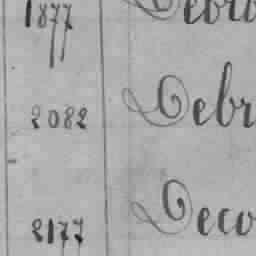 1877 Debro
2082 Debr
2177 Deco